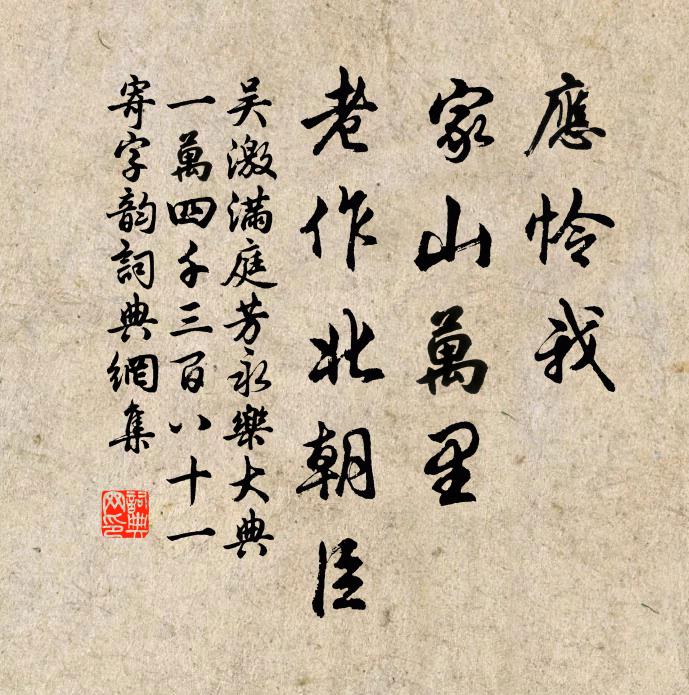 應怜我
家山萬里
老作北朝臣
吴激滿庭芳永樂大典
一萬四千三百八十一
寄字韵詞典網集
詞典
网印